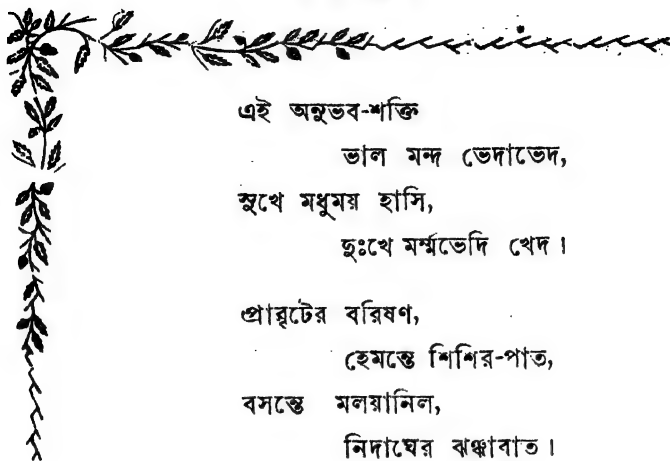 এই অনুভব-শক্তি
ভাল মন্দ ভেদাভেদ,
সুখে মধুময় হাসি,
দুঃখে মর্ম্মভেদি খেদ।
প্রাবৃটের বরিষণ,
হেমন্তে শিশির-পাত,
বসন্তে মলয়ানিল,
নিদাঘের ঝঞ্ঝাবাত।